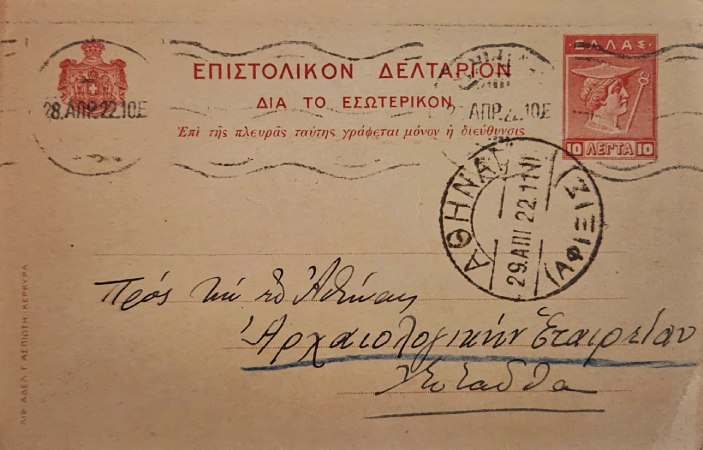 ΕΛΛΑΣ
ΕΠΙΣΤΟΛΙΚΟΝ ΔΕΛΤΑΡΙΟΝ
ΔΙΑ ΤΟ ΕΣΩΤΕΡΙΚΟΝ
Ἐπὶ τῆς πλευρᾶς ταύτης γράφεται μόνον ἡ διεύθυνσις
10 ΛΕΠΤΑ 10
28.ΑΠΡ.22.10Σ
ΑΠΡ.22.10Σ
ΑΘΗΝΑΙ
29.ΑΠ 22.1
(ΑΦΙΞΙΣ)
Πρός τήν ἐν Ἀθήναις
Ἀρχαιολογικήν Ἑταιρείαν
Ἐνταῦθα
ΛΙΘ ΑΔΕΛ Γ ΑΣΠΙΩΤΗ ΚΕΡΚΥΡΑ